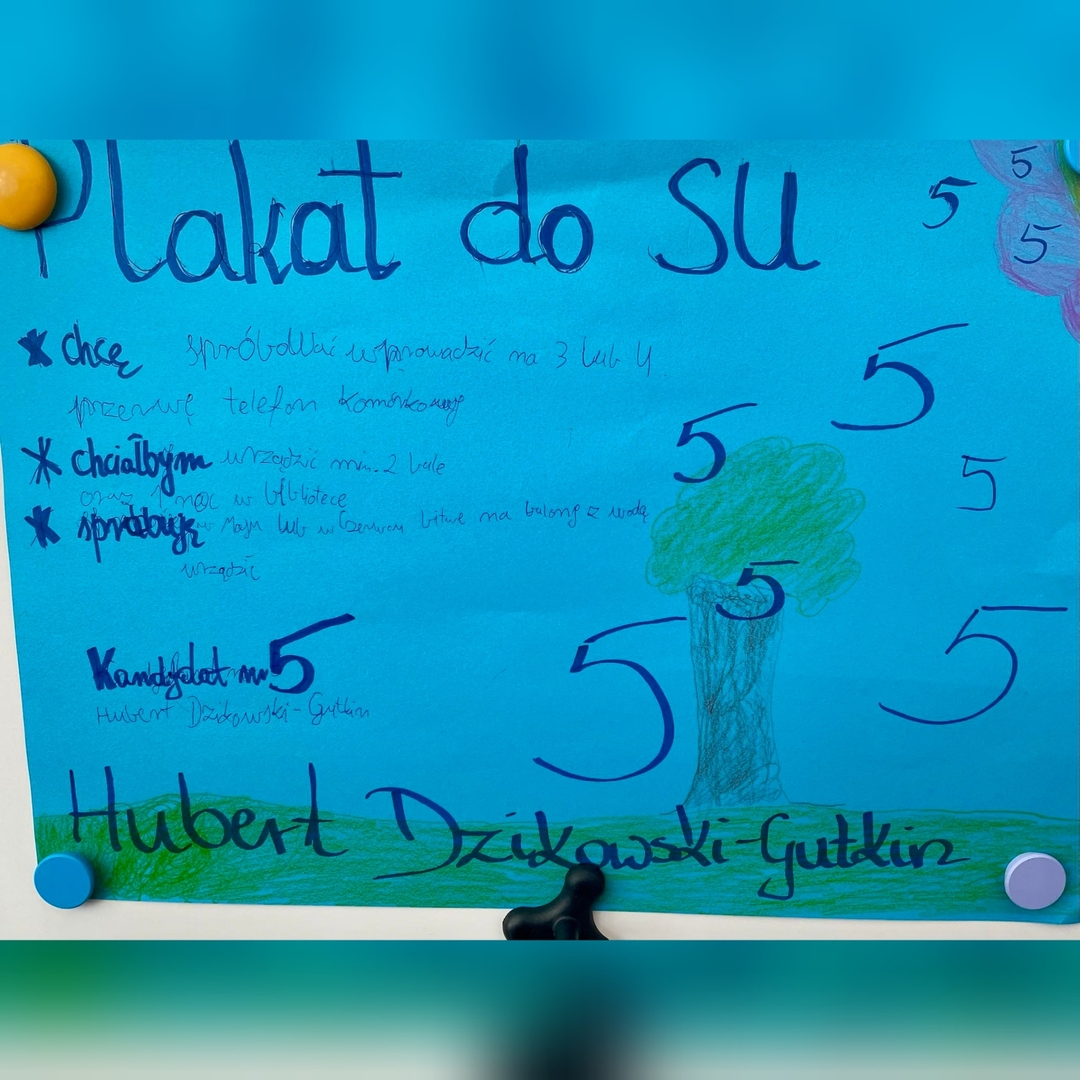 Plakat do SU
5
5
5
* chcę spróbować wprowadzić na 3 lub 4
przerwę telefon komórkowy
5
5
* chciałbym urządzić min. 2 bale
oraz 1 noc w bibliotece
5
* spróbuję w Maju lub w Czerwcu bitwę na balony z wodą
urządzić
5
Kandydat nr 5
5
5
Hubert Dzikowski-Gutkin
Hubert Dzikowski-Gutkin